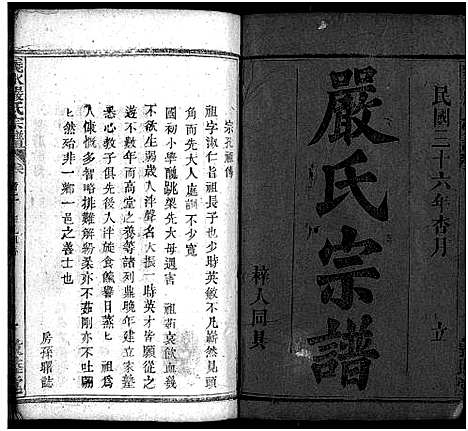 民國三十六年杏月 立
嚴氏宗譜
梓人同具
宗孔祖傳
祖字淑仁皆祖長子也少時英敏不凡嶄然見頭
角而先大人庭訓不少寬
國初小學醜跳梁先大母遇害 祖茹哀飲血義
不欲生弱歲入泮聲名大振一時英才皆願從之
遊不數年而高堂之養等諸列鼎晚年建立家塾
悉心教子俱先後入泮旋食餼譽日蒸 祖爲
人慷慨多智略排難解紛柔亦不茹剛亦不吐嗣
然殆非一鄉一邑之善士也
房孫 誌